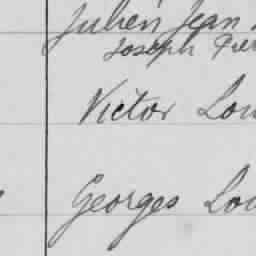 Julien Jean
Joseph
Victor
Georges